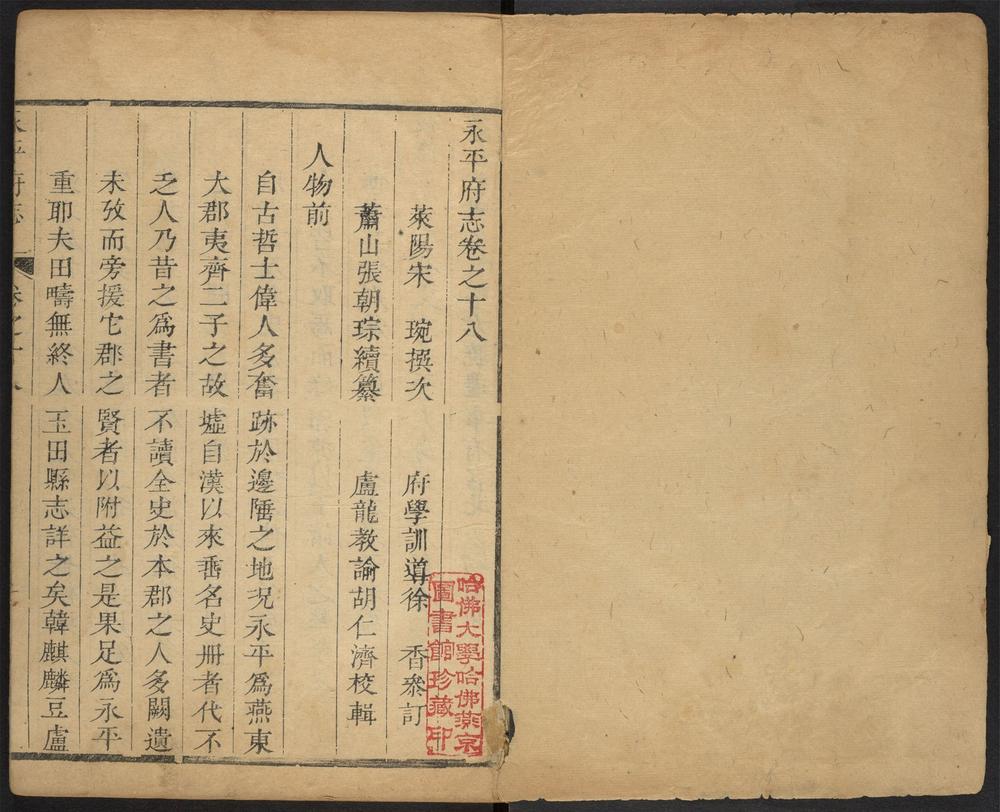 永平府志卷之十八
萊陽宋 琬撰次 府學訓導徐 香叅訂
蕭山張朝琮續纂 盧龍教諭胡仁濟校輯
人物前
自古哲士偉人多奮跡於邊陲之地況永平爲燕東
大郡夷齊二子之故墟自漢以來垂名史冊者代不
乏人乃昔之爲書者不讀全史於本郡之人多闕遺
未攷而旁援它郡之賢者以附益之是果足爲永平
重耶夫田疇無終人玉田縣志詳之矣韓麒麟豆盧
永平府志 卷之十八
哈佛大學哈佛燕京
圖書館珍藏印